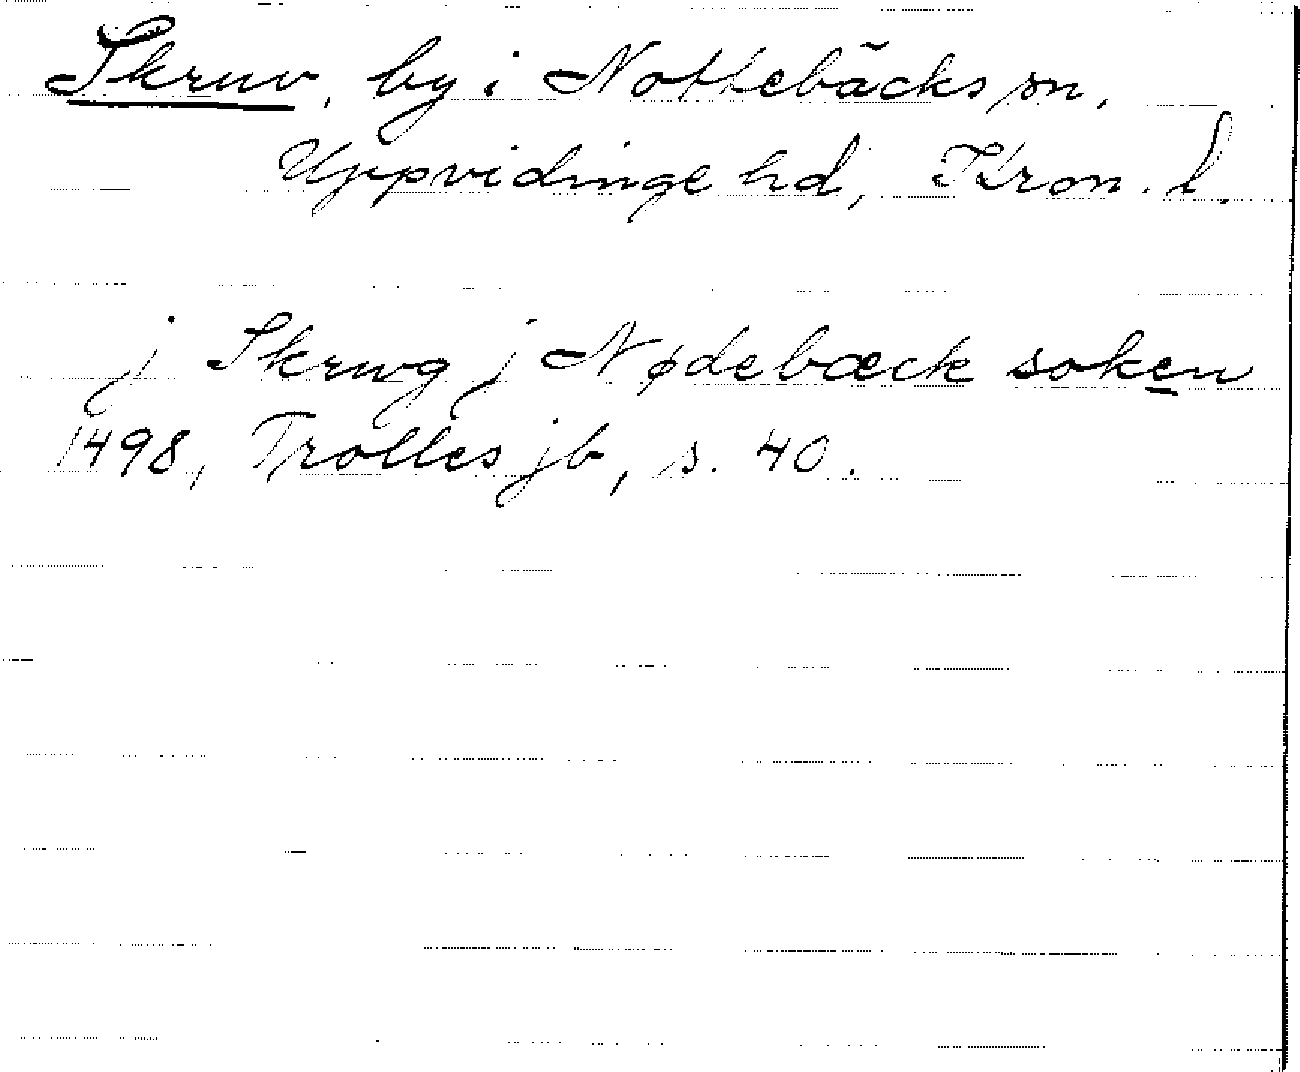 Skruv, by i Nottebäcks sn,
Uppvidinge hd, Kron. l.
j Skrwg j Nødebæck soken
1498, Trolles jb, s. 40.